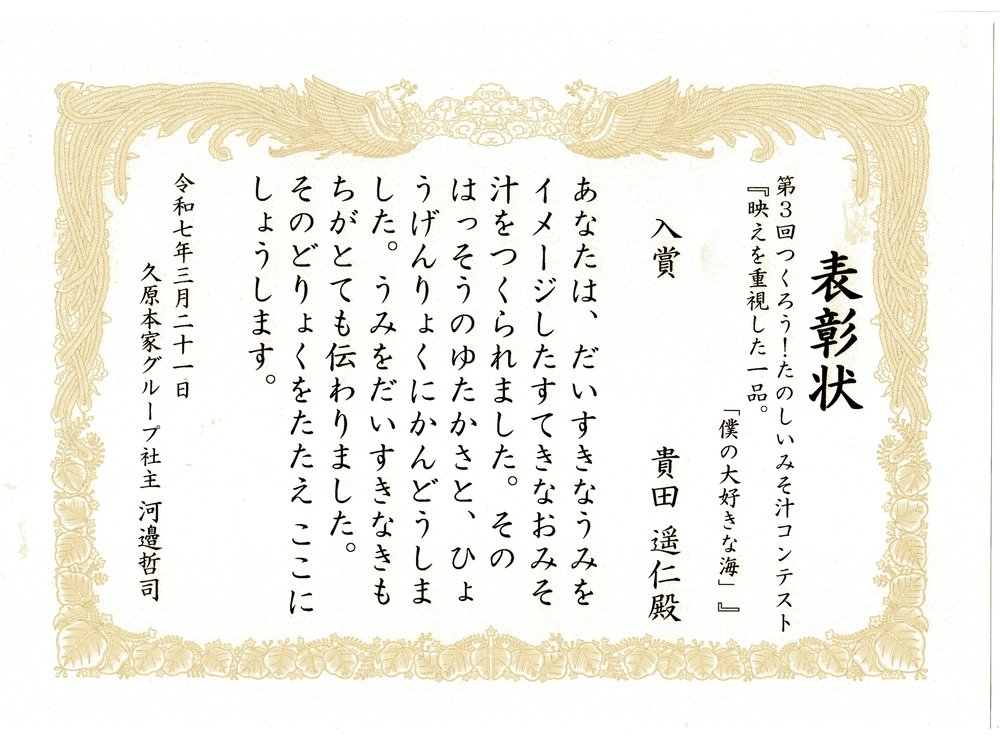 表彰状
第3回つくろう!たのしいみそ汁コンテスト
『映えを重視した一品。
「僕の大好きな海」』
入賞
貴田 遥仁殿
あなたは、だいすきなうみを
イメージしたすてきなおみそ
汁をつくられました。その
はっそうのゆたかさと、ひょ
うげんりょくにかんどうしま
した。うみをだいすきなきも
ちがとても伝わりました。
そのどりょくをたたえ ここに
しょうします。
令和七年三月二十一日
久原本家グループ社主 河邉哲司